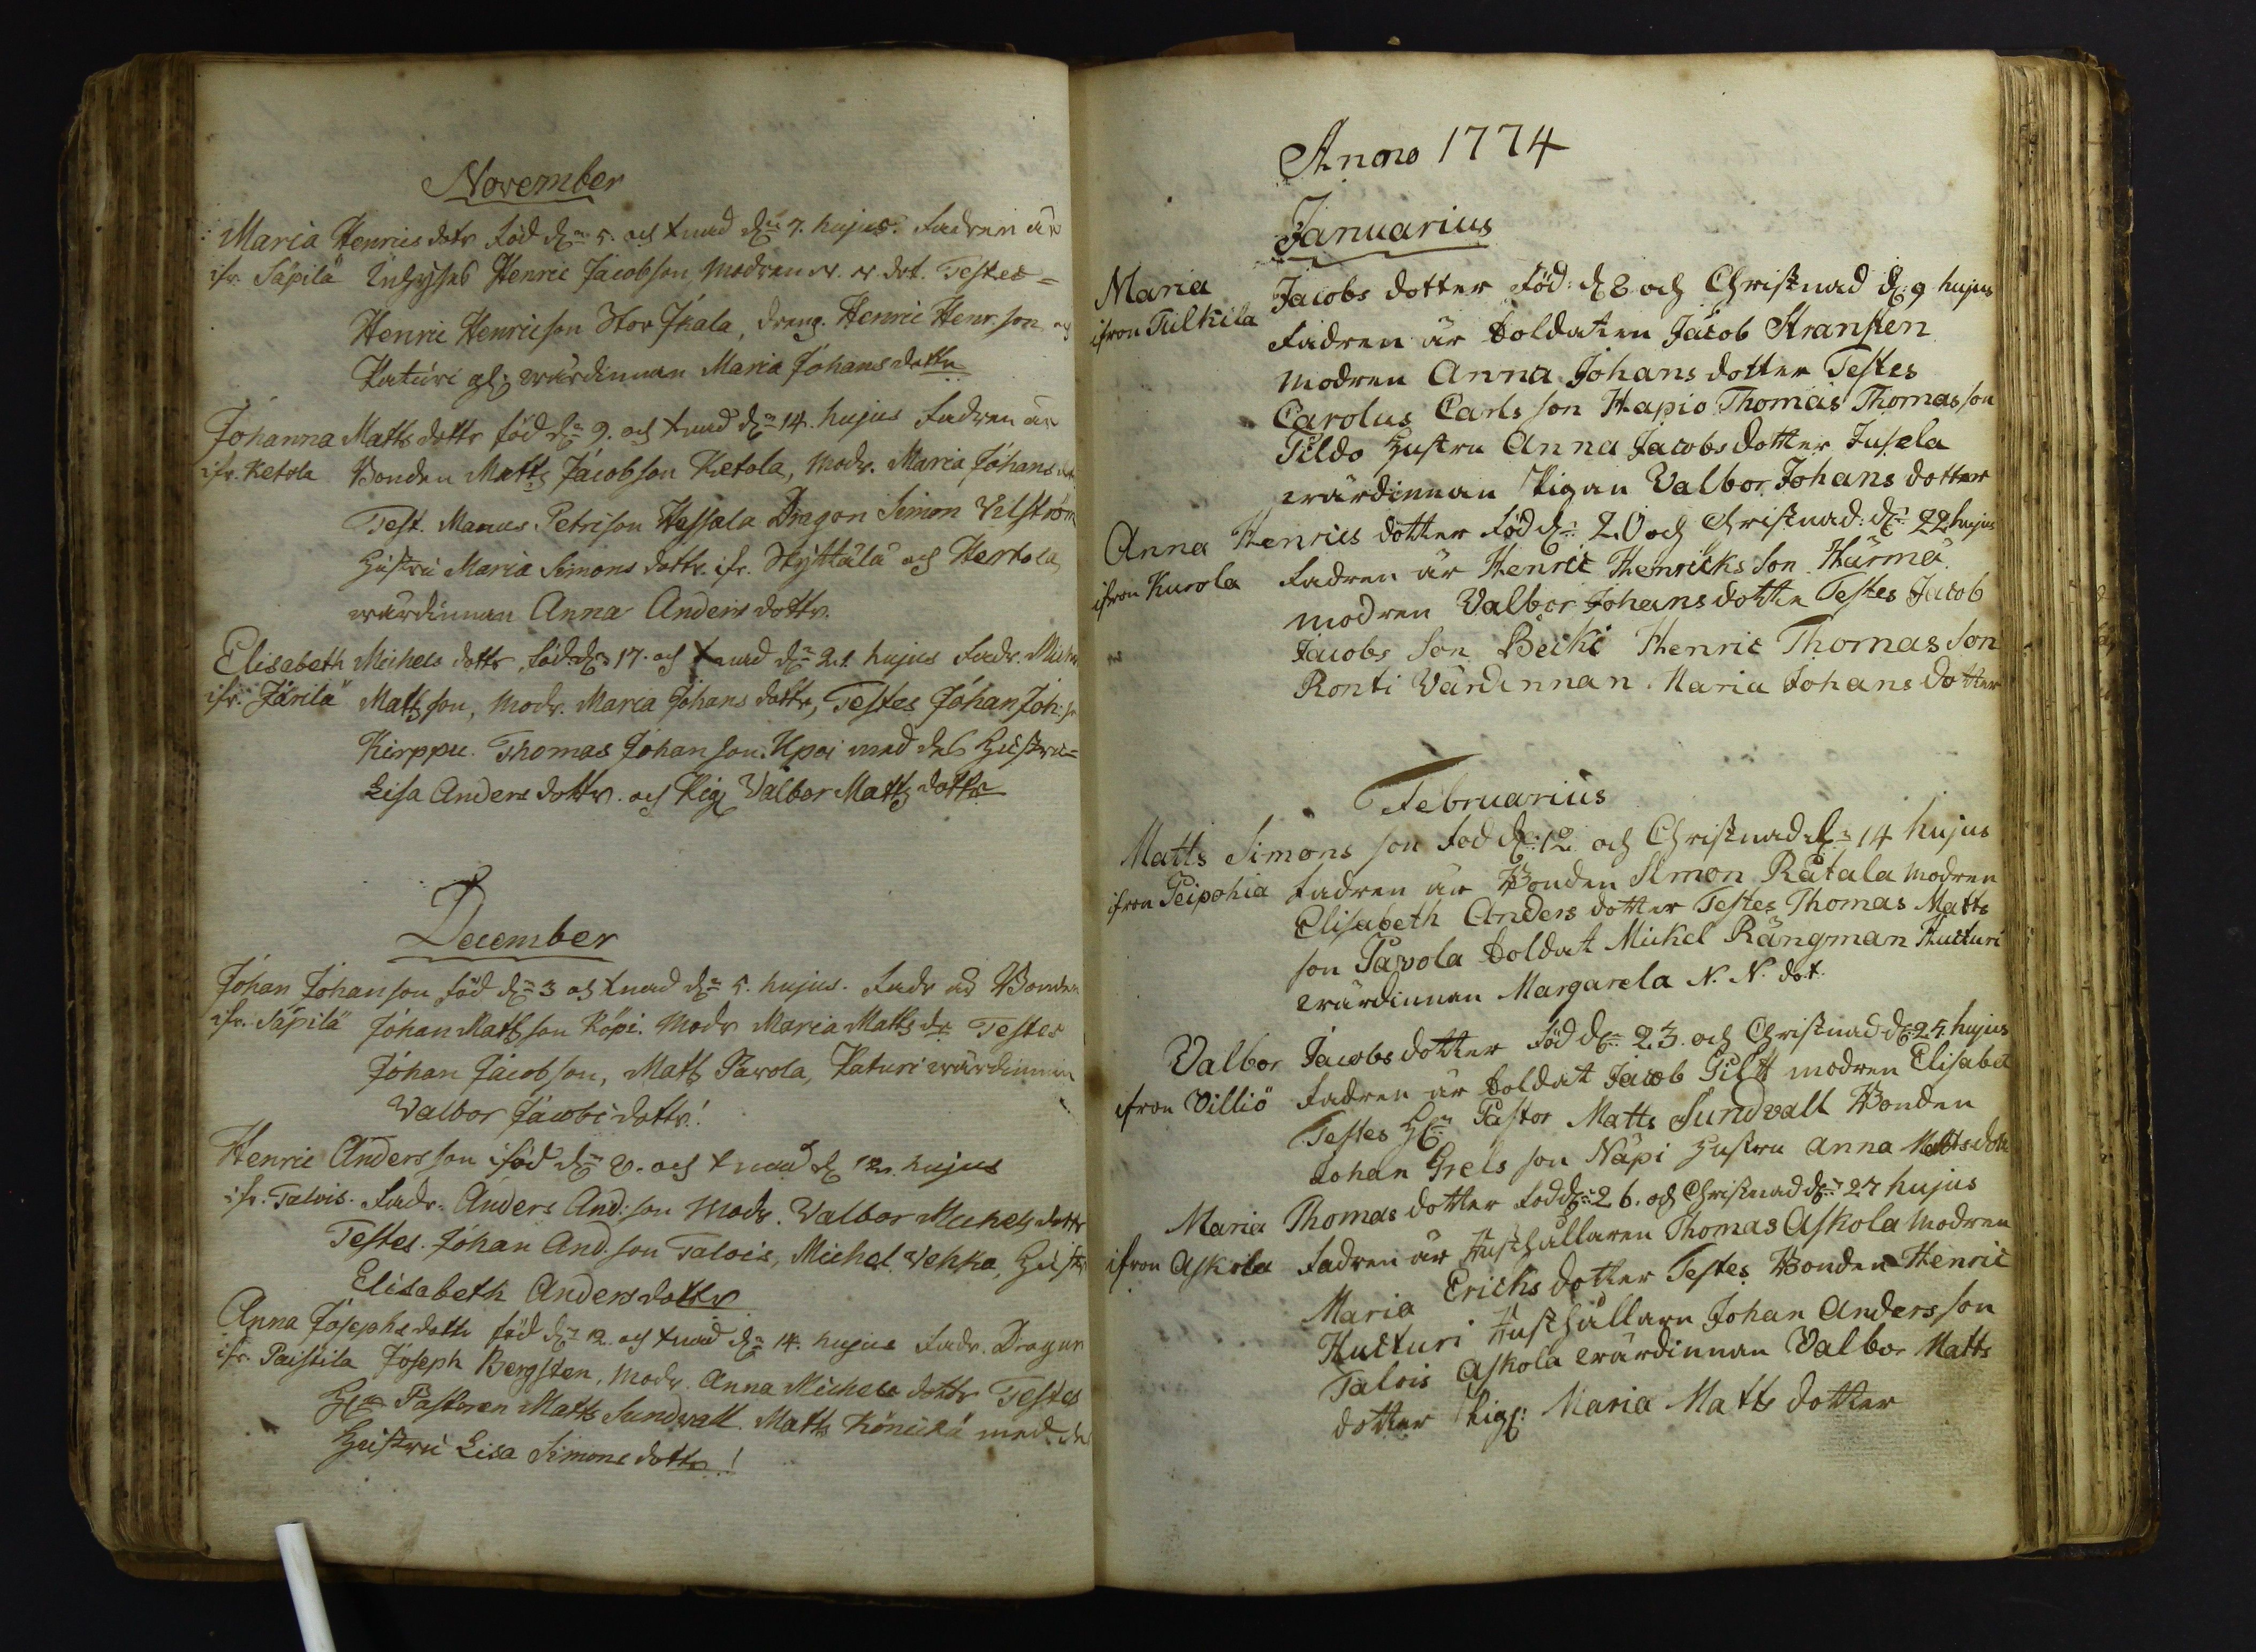 November
Maria Henrics dotr född dn 5. och xnad dn 7. hujus. Fadren är
ifr. Säpilä Inhyses Henric Jacobson, Modren N. N. dot. Testes =
Henric Henricson Stor Ikala, dreng. Henric Henr. son och
Katuri wärdinnan Maria Johans dotter
Johanna Matts dottr född dn 9. och xnad dn 14. hujus Fadren är
ifr. Ketola Bonden Matts Jacobson Ketola, Modr. Maria Johans
Test. Marcus Petrison Hessala Dragon Simon Vilström
Hustru Maria Simons dottr. ifr. Skyttälä och Hertola
wärdinnan Anna Anders dottr.
Elisabeth Michels dottr, född dn 17. och xnad dn 21. hujus Fadr. Miche
ifr. Järilä Mattsson, Modr. Maria Johans dottr, Testes Johan Joh: son
Kirppu. Thomas Johanson Upoi med des Hustru =
Lisa Anders dottr. och Pig Valbor Matts dottr
December
Johan Johanson född dn 3 och xnad dn 5. hujus. Fadr är Bonden
ifr. Säpilä Johan Mattsson Röpi. Modr Maria Matts dr Testes
Johan Jacobson, Matts Pavola, Katuri wärdinnan
Valbor Jacobs dottr!
Henric Andersson född dn 9. och xnad d 12. hujus
ifr. Talvis. Fadr. Anders And: son Modr. Valbor Michels dottr
Testes. Johan And. son Talois, Michel Vehka, Hustr
Elisabeth Anders dottr
Anna Josephs dottr född dn 12. och xnad dn 14. hujus Fadr. Dragun
ifr. Paistila Joseph Bergsten, Modr. Anna Michels dottr Testes
Hr Pastoren Matts Sundvall. Matts Könickä med des
Hustru Lisa Simons dottr!
Anno 1774
Januarius
Maria Jacobs dotter Föd: d 8 och Christnad d: 9 hujus
ifron Tulkila Fadren är Soldaten Jacob Stransten
modren Anna Johans dotter Testes
Carolus Carls son Hapio Thomas Thomas son
Pildo Hustru Anna Jacobs dotter Jusela
wärdinnan Pigan Valbor Johans dotter
Anna Henrics dotter född dn 20 och Christnad: dn 22 hujus
ifron Kurola Fadren är Henric Henricks son Härmä
modren Valbor Johans dotter Testes Jacob
Jacobs Son Becki Henric Thomas Son
Ronti Värdinnan Maria Johans dotter
Februarius
Matts Simons son Föd dn: 12 och Christnad dn 14 hujus
ifron Peipohia Fadren är Bonden Simon Rätala modren
Elisabeth Anders dotter Testes Thomas Matts
son Pavola Soldat Mickel Rängman Hutturi
wärdinnan Margareta N. N. dot.
Valbor Jacobs dotter Föd dn. 23. och Christnad d: 25. hujus
ifron Villiö Fadren är Soldat Jacob Gillt modren Elisabet
Testes Hr. Pastor Matts Sundvall Bonden
Johan Grels son Näpi Hustru Anna Matts dotr
Maria Thomas dotter Föd dn: 26. och Christnad dn 27 hujus
ifron Askola Fadren är Hushållaren Thomas Askola modren
Maria Erichs dotter Testes Bonden Henric
Hutturi Hushållarn Johan Anders son
Talois Askola wärdinnan Valbor Matts
dotter Pig: Maria Matts dotter